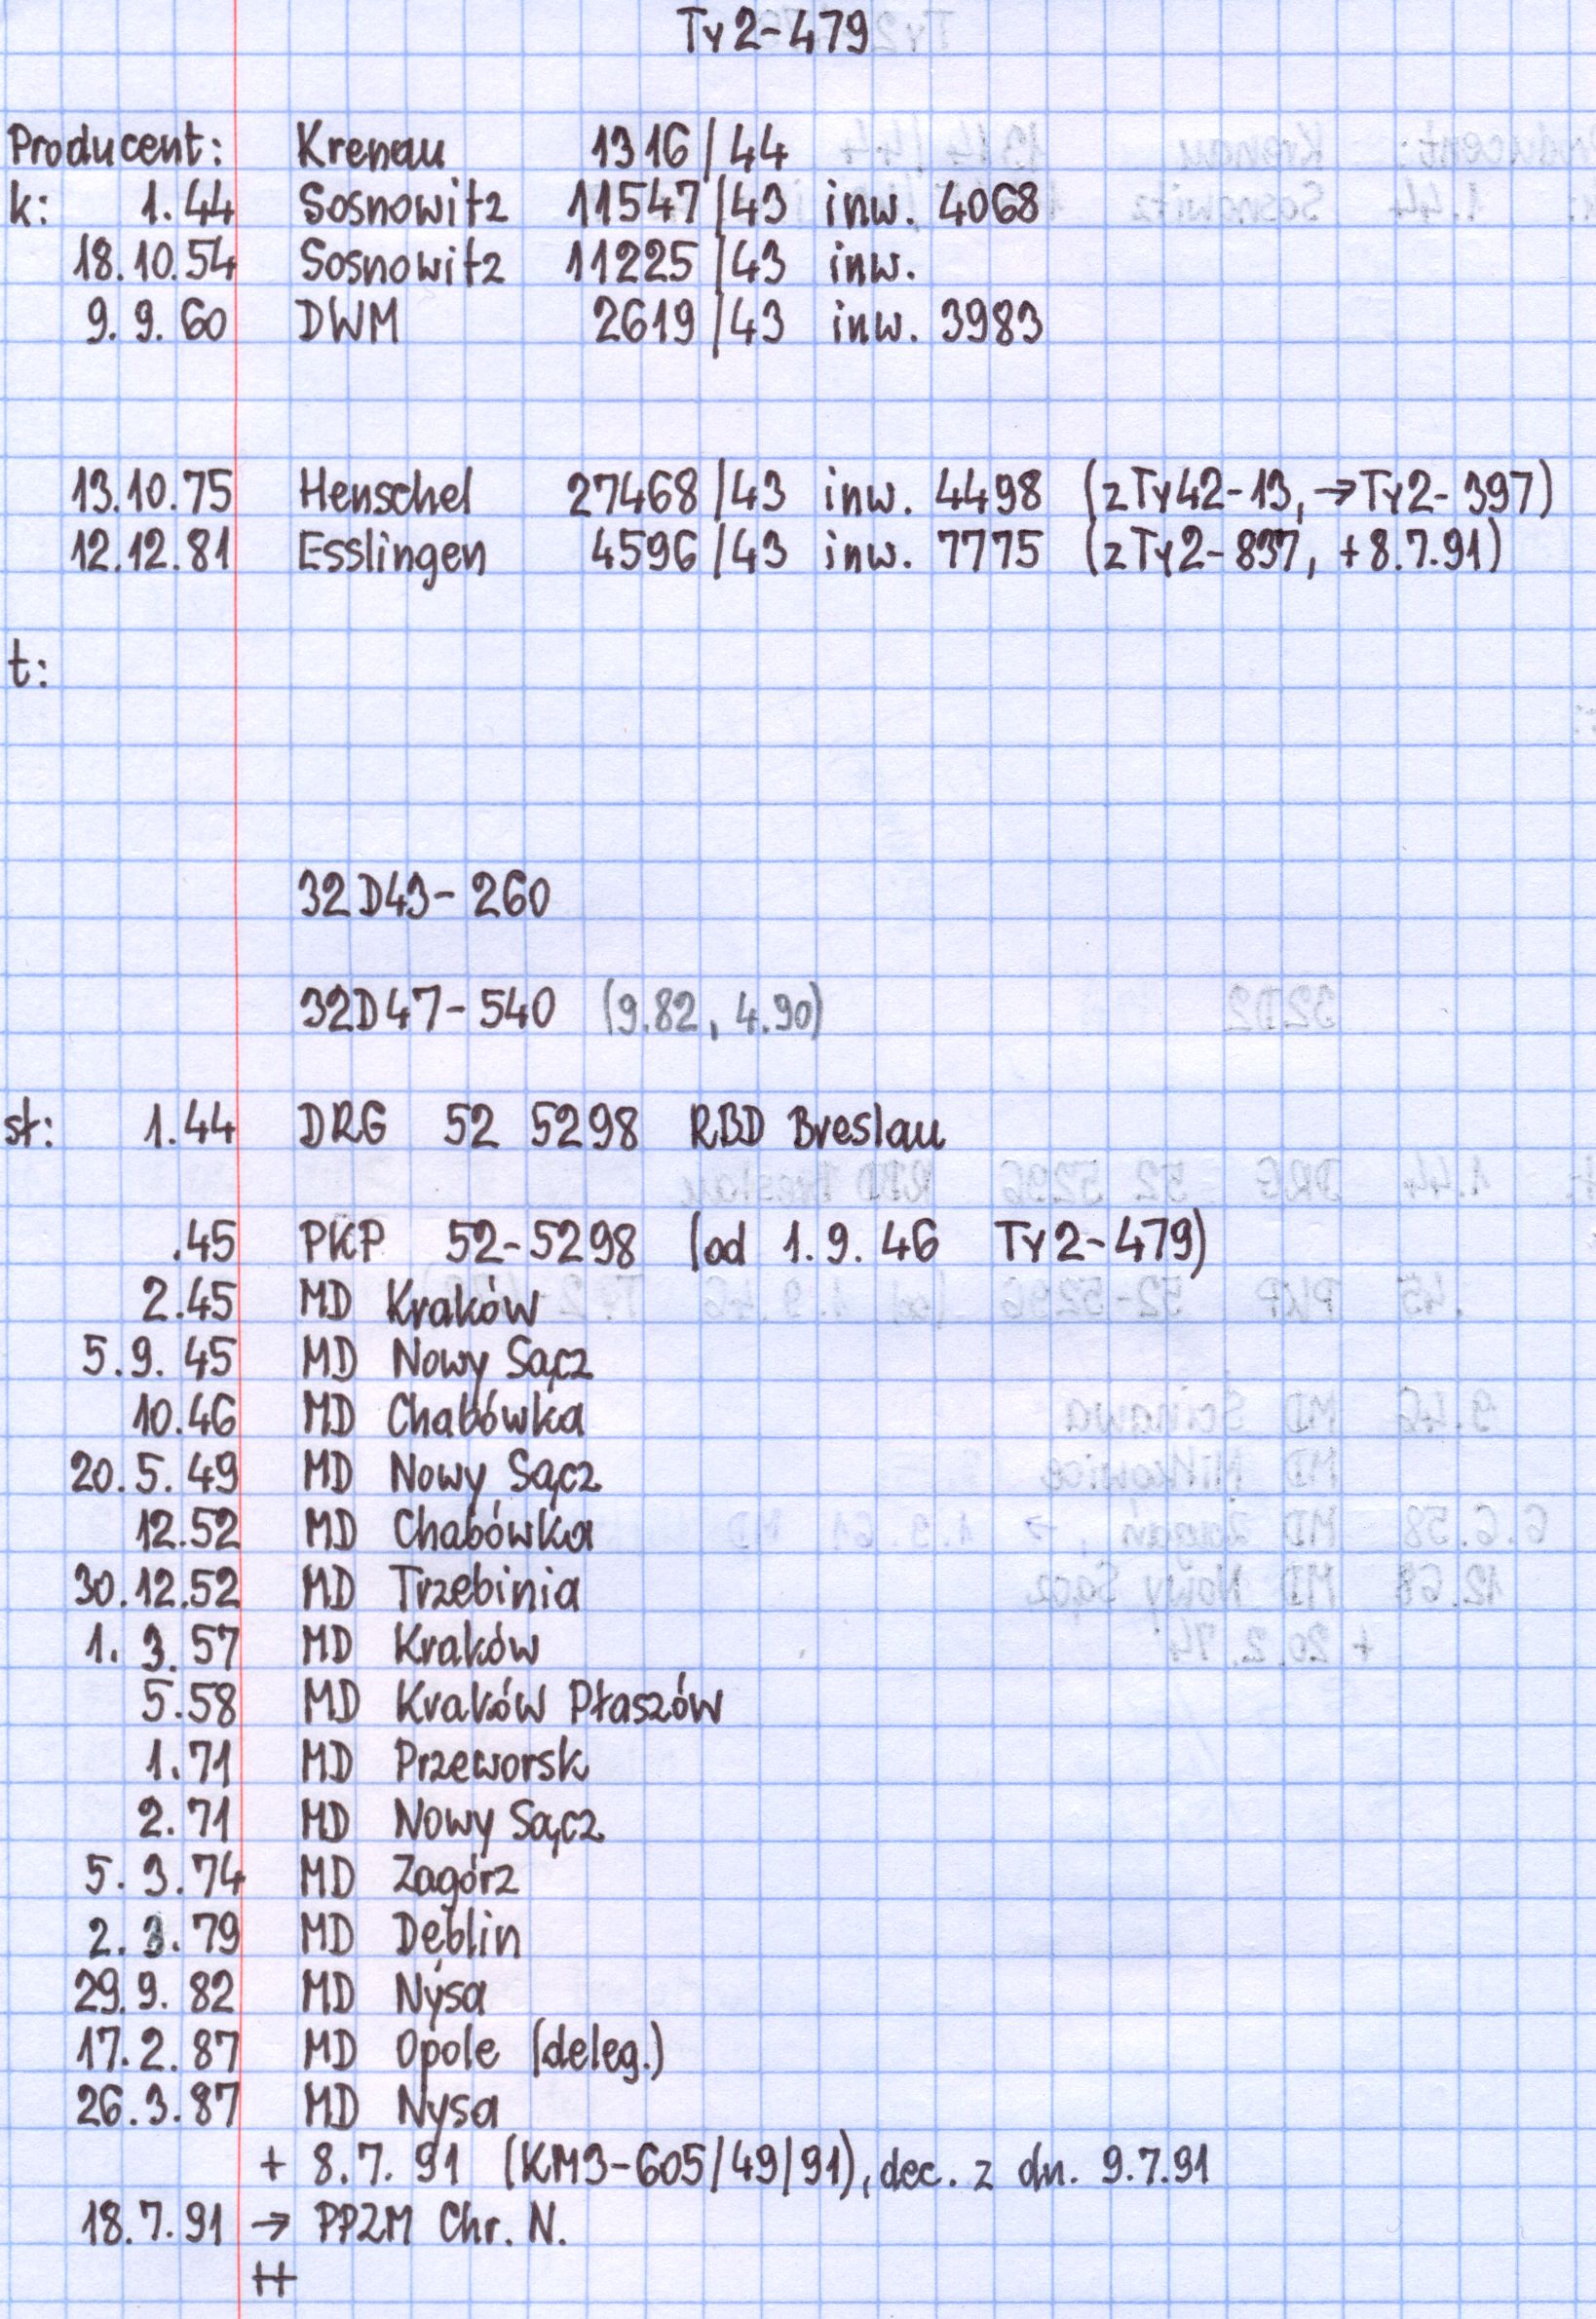 Ty2-479
Producent: Krenau 1316/44
k: 1.44 Sosnowitz 11547/43 inw. 4068
18.10.54 Sosnowitz 11225/43 inw.
9.9.60 DWM 2619/43 inw. 3983
13.10.75 Henschel 27468/43 inw. 4498 (z Ty42-13, →Ty2-397)
12.12.81 Esslingen 4596/43 inw. 7775 (z Ty2-837, +8.7.91)
t:
32D43-260
32D47-540 (9.82, 4.90)
st: 1.44 DRG 52 5298 RBD Breslau
.45 PKP 52-5298 (od 1.9.46 Ty2-479)
2.45 MD Kraków
5.9.45 MD Nowy Sącz
10.46 MD Chabówka
20.5.49 MD Nowy Sącz
12.52 MD Chabówka
30.12.52 MD Trzebinia
1.3.57 MD Kraków
5.58 MD Kraków Płaszów
1.71 MD Przeworsk
2.71 MD Nowy Sącz
5.3.74 MD Zagórz
2.3.79 MD Dęblin
29.9.82 MD Nysa
17.2.87 MD Opole (deleg.)
26.3.87 MD Nysa
+ 8.7.91 (KM3-605/49/91), dec. z dn. 9.7.91
18.7.91 → PPZM Chr. N.
++